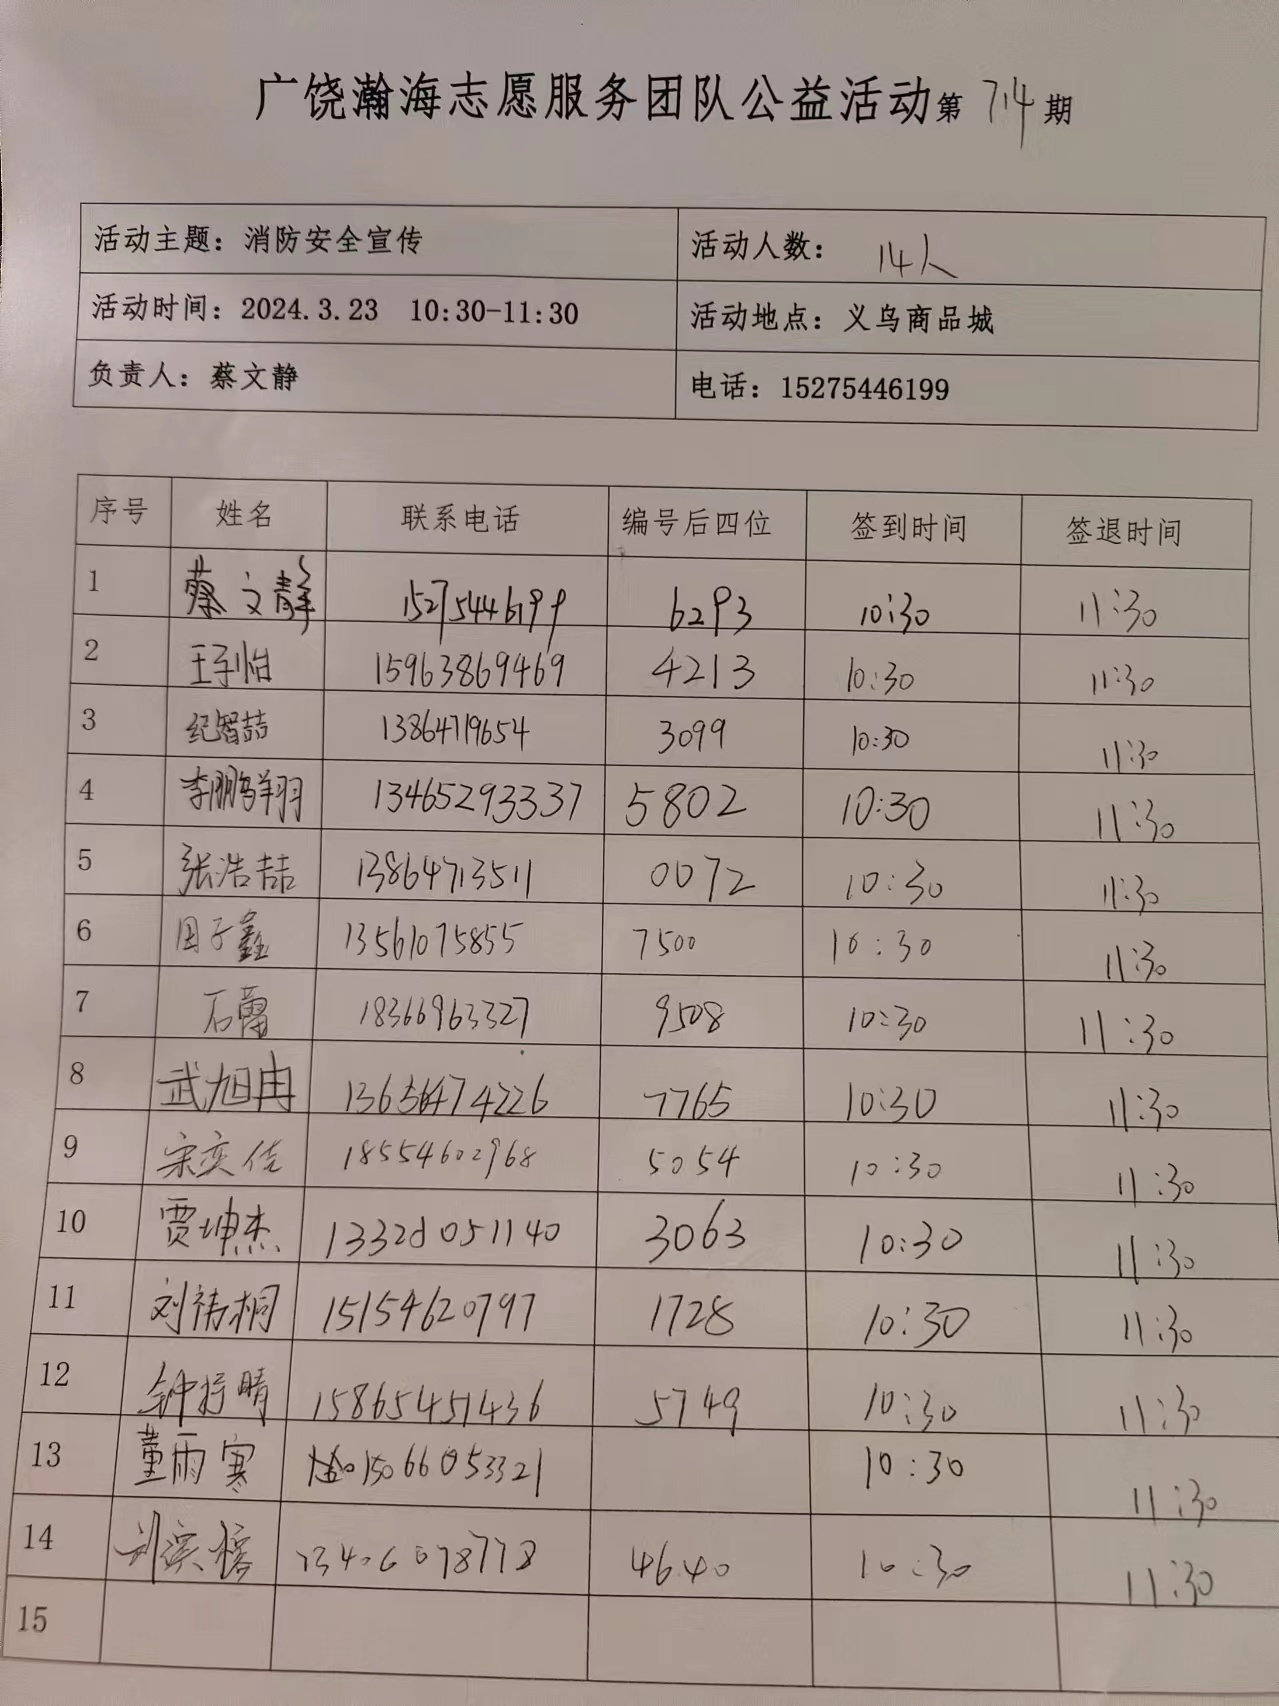 广饶瀚海志愿服务团队公益活动第714期
活动主题：消防安全宣传 活动人数：14人
活动时间：2024.3.23 10:30-11:30 活动地点：义乌商品城
负责人：蔡文静 电话：15275446199
序号 姓名 联系电话 编号后四位 签到时间 签退时间
1 蔡文静 15275446199 6293 10:30 11:30
2 王子怡 15963869469 4213 10:30 11:30
3 纪智喆 13864719654 3099 10:30 11:30
4 李鹏翔 13465293337 5802 10:30 11:30
5 张浩喆 13864713511 0072 10:30 11:30
6 田子鑫 13561075855 7500 10:30 11:30
7 石蕾 18366963327 9508 10:30 11:30
8 武旭冉 13656474226 7765 10:30 11:30
9 宋奕佳 18554602968 5054 10:30 11:30
10 贾坤杰 1332 051140 3063 10:30 11:30
11 刘祎桐 15154620797 1728 10:30 11:30
12 钟 晴 15865451436 5749 10:30 11:30
13 董雨寒 15066053321 10:30 11:30
14 刘滨榕 13406078778 4640 10:30 11:30
15